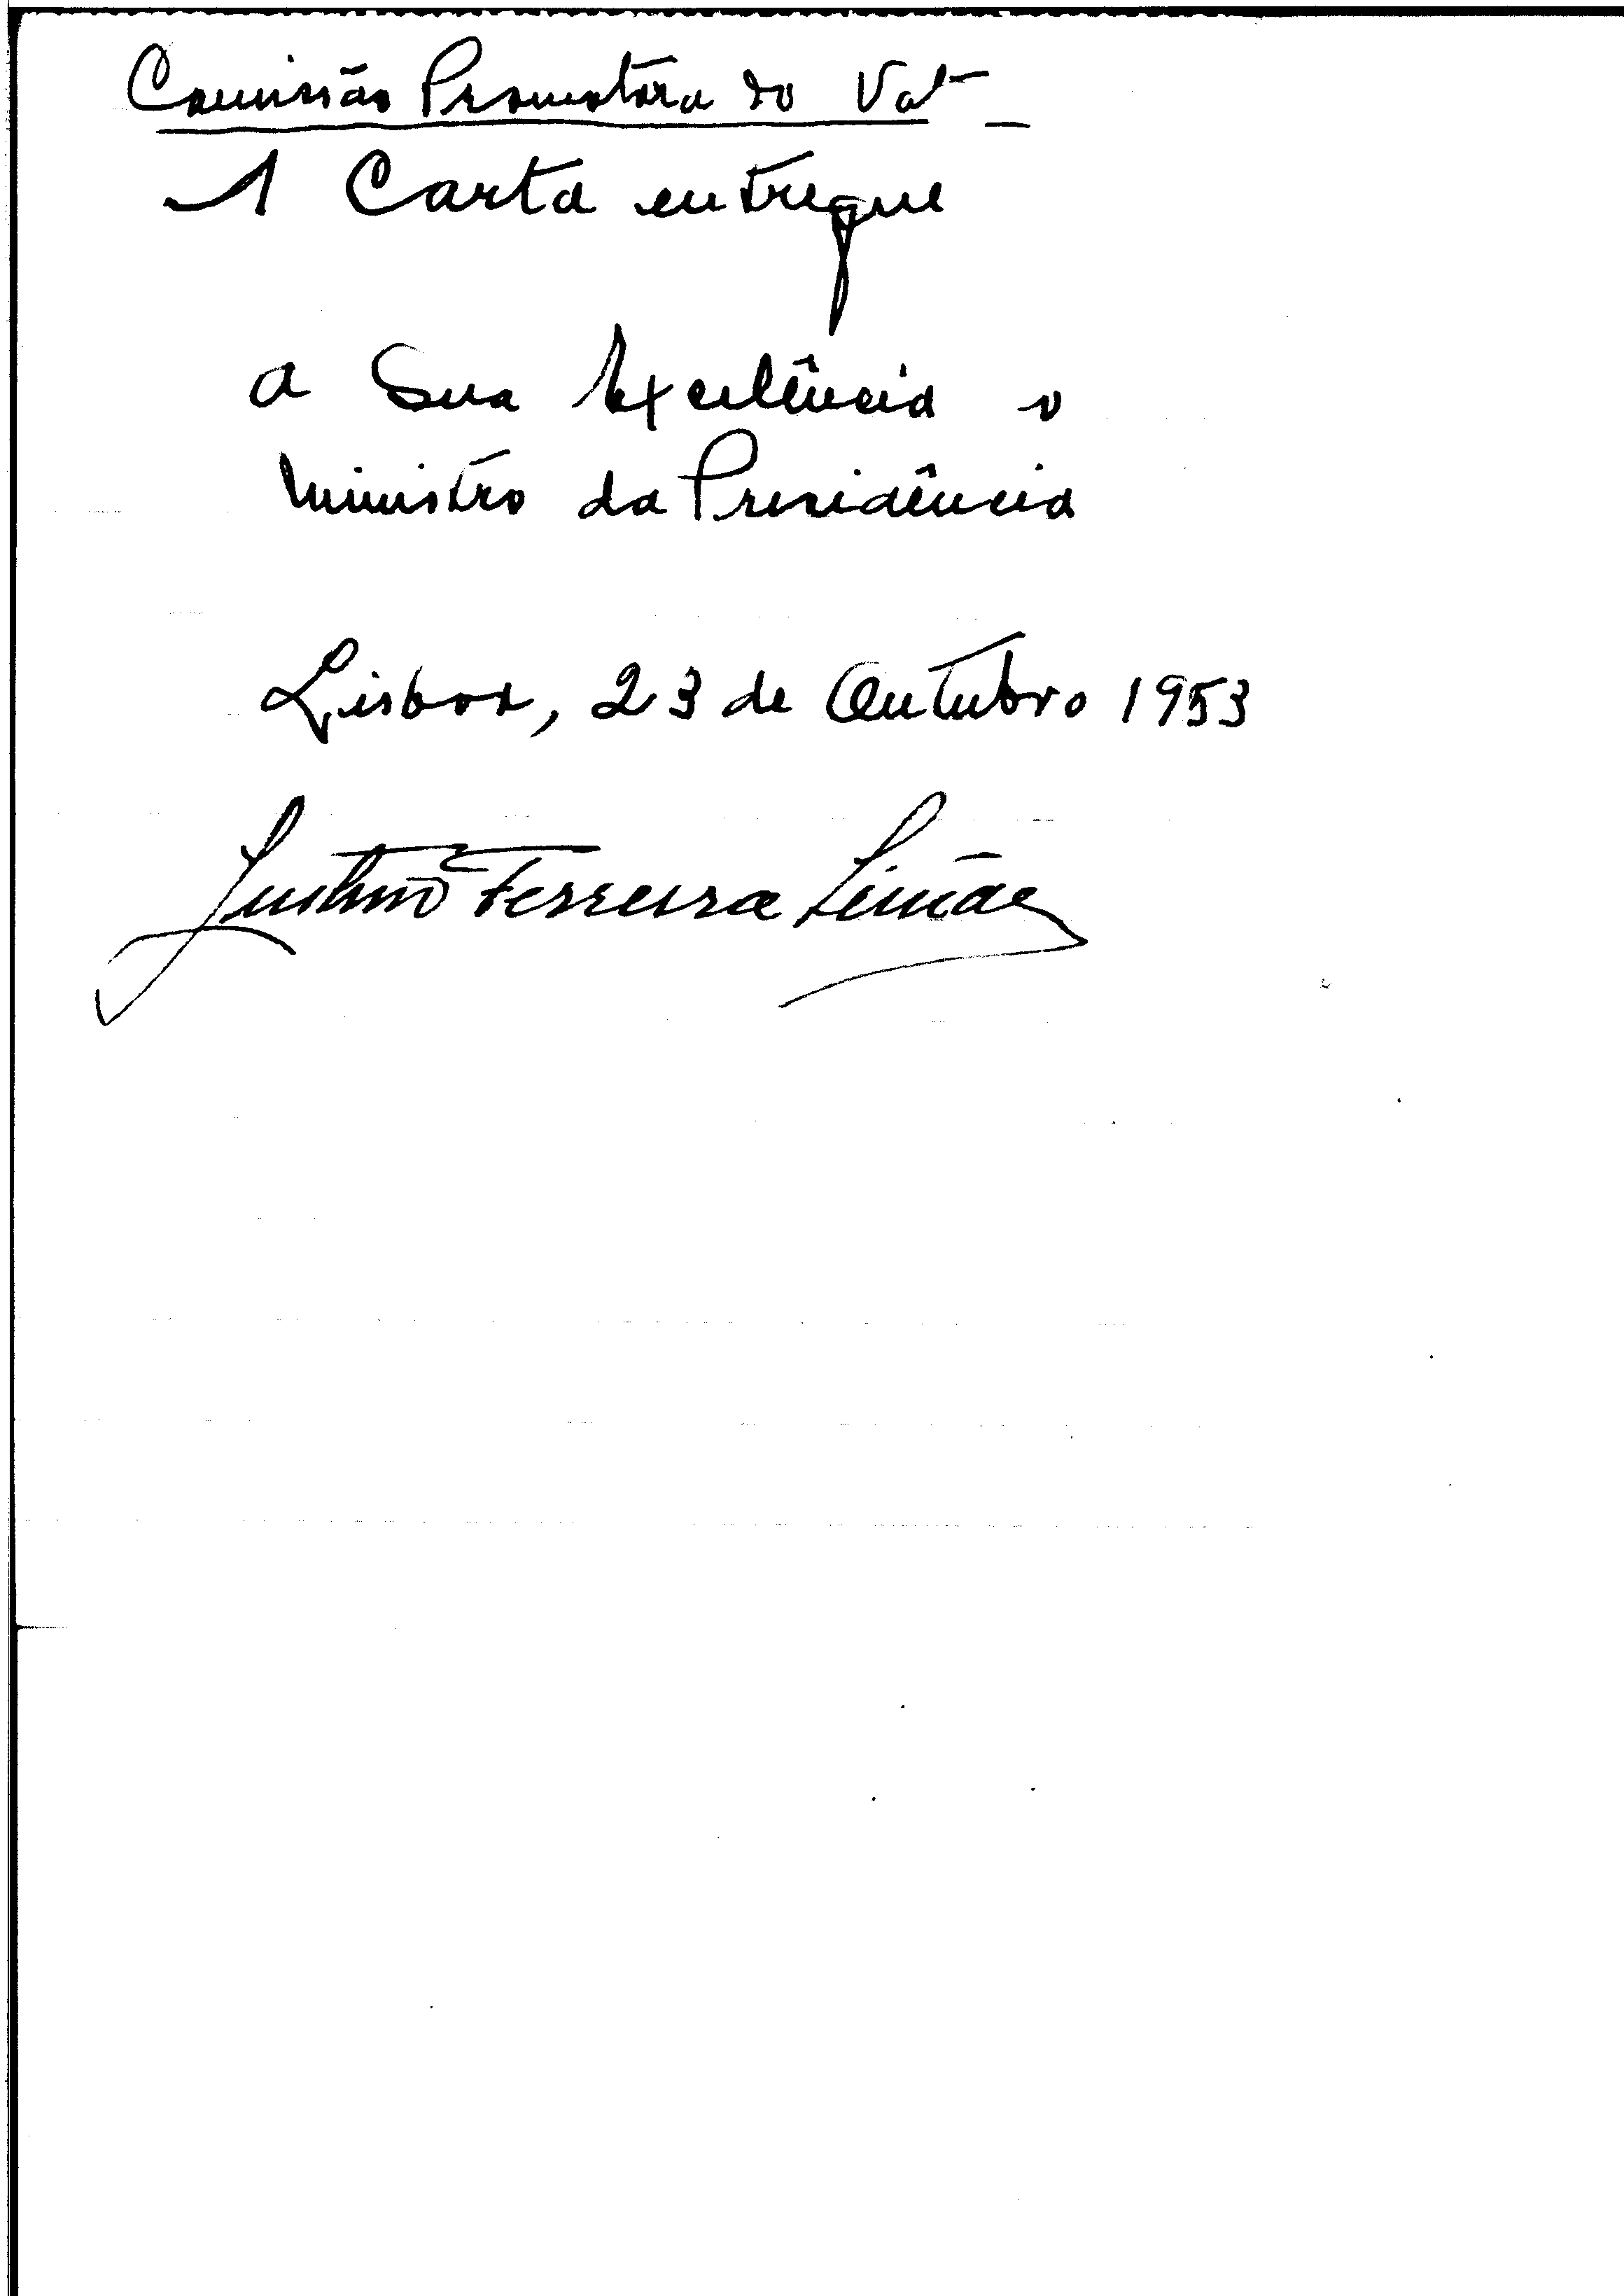 Comissão Promotora do Vat
1 Carta entregue
a Sua Excelência o
Ministro da Presidência
Lisboa, 23 de Outubro 1953
Ferreira